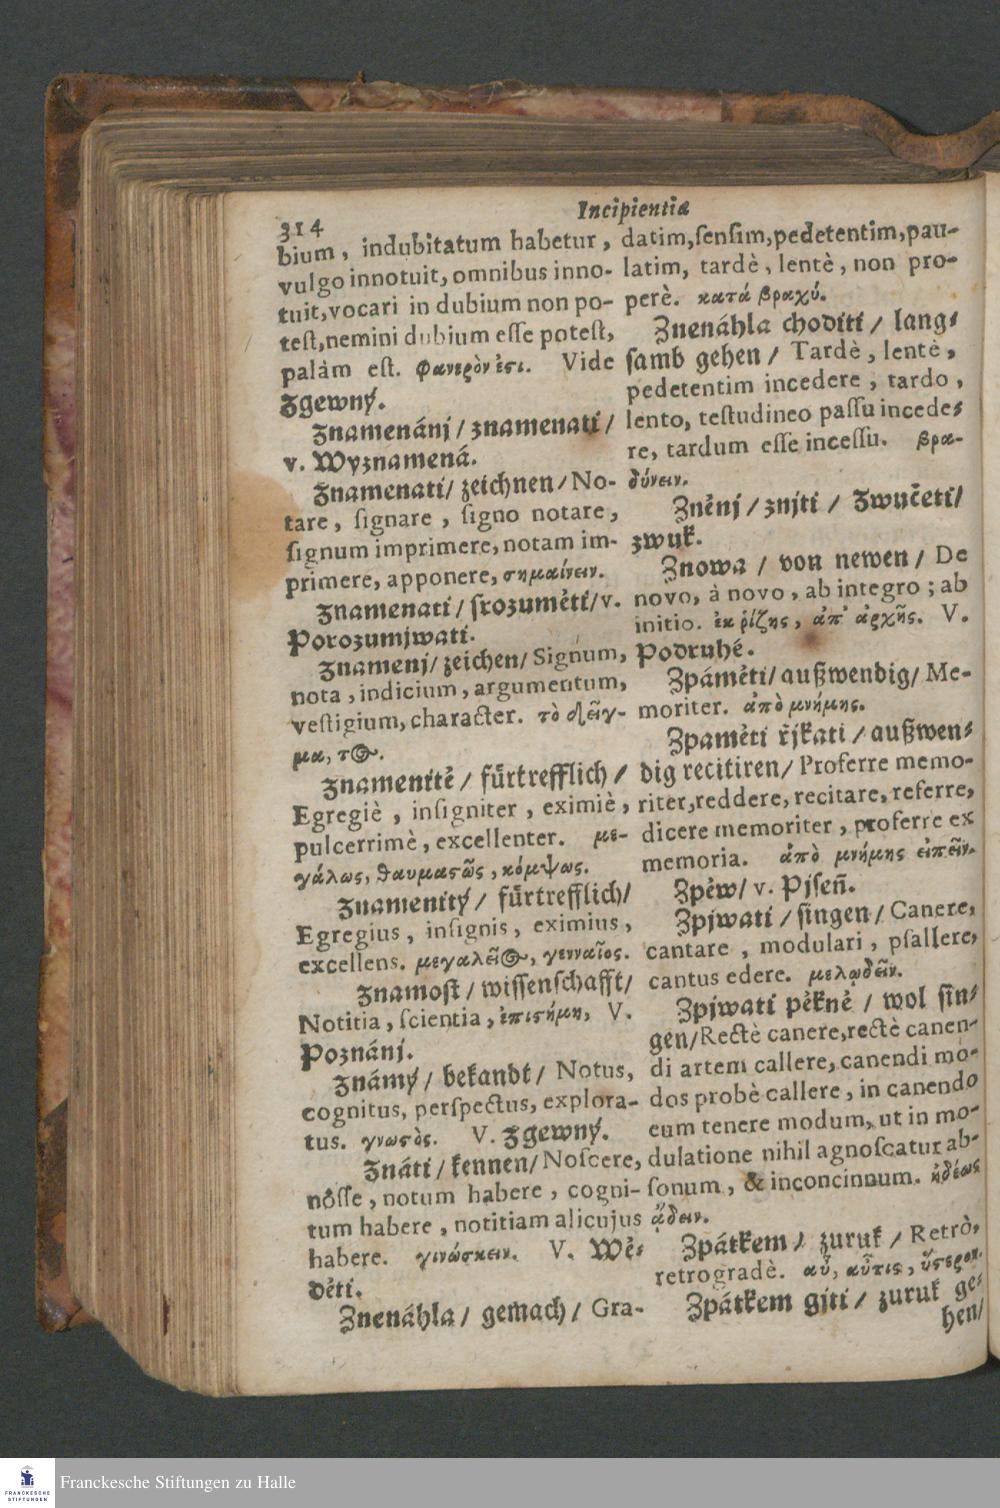 314
Incipientia
bium, indubitatum habetur,
vulgo innotuit, omnibus inno-
tuit, vocari in dubium non po-
test, nemini dubium esse potest,
palàm est. φανερόν ἐστι. Vide
Zgewný.
Znamenánj / znamenati /
v. Wyznamená.
Znamenati / zeichnen / No-
tare, signare, signo notare,
signum imprimere, notam im-
primere, apponere, σημαίνειν.
Znamenati / srozuměti / v.
Porozumjwati.
Znamenj / zeichen / Signum,
nota, indicium, argumentum,
vestigium, character. τὸ δεῖγ-
μα, τος.
Znamenitě / fürtrefflich /
Egregiè, insigniter, eximiè,
pulcerrimè, excellenter. με-
γάλως, θαυμαστῶς, κόμψως.
Znamenitý / fürtrefflich /
Egregius, insignis, eximius,
excellens. μεγαλεῖος, γενναῖος.
Znamost / wissenschafft /
Notitia, scientia, ἐπιστήμη, V.
Poznánj.
Známý / bekandt / Notus,
cognitus, perspectus, explora-
tus. γνωστὸς. V. Zgewný.
Znáti / kennen / Noscere,
nôsse, notum habere, cogni-
tum habere, notitiam alicujus
habere. γινώσκειν. V. Wě-
děti.
Znenáhla / gemach / Gra-
datim, sensim, pedetentim, pau-
latim, tardè, lentè, non pro-
perè. κατά βραχύ.
Znenáhla choditi / lang-
samb gehen / Tardè, lentè,
pedetentim incedere, tardo,
lento, testudineo passu incede-
re, tardum esse incessu. βρα-
δύνειν.
Zněnj / znjti / Zwučeti /
zwuk.
Znowa / von newen / De
novo, à novo, ab integro; ab
initio. ἐκ ῥίζης, ἀπ' ἀρχῆς. V.
Podruhé.
Zpáměti / außwendig / Me-
moriter. ἀπὸ μνήμης.
Zpaměti řjkati / außwen-
dig recitiren / Proferre memo-
riter, reddere, recitare, referre,
dicere memoriter, proferre ex
memoria. ἀπὸ μνήμης εἰπεῖν.
Zpěw / v. Pjseň.
Zpjwati / singen / Canere,
cantare, modulari, psallere,
cantus edere. μελῳδεῖν.
Zpjwati pěkně / wol sin-
gen / Rectè canere, rectè canen-
di artem callere, canendi mo-
dos probè callere, in canendo
eum tenere modum, ut in mo-
dulatione nihil agnoscatur ab-
sonum, & inconcinnum. ἡδέως
ᾄδειν.
Zpátkem / zuruk / Retrò,
retrogradè. αὖ, αὖτις, ὕστερον.
Zpátkem gjti / zuruk ge-
hen /
Franckesche Stiftungen zu Halle
FRANCKESCHE
STIFTUNGEN